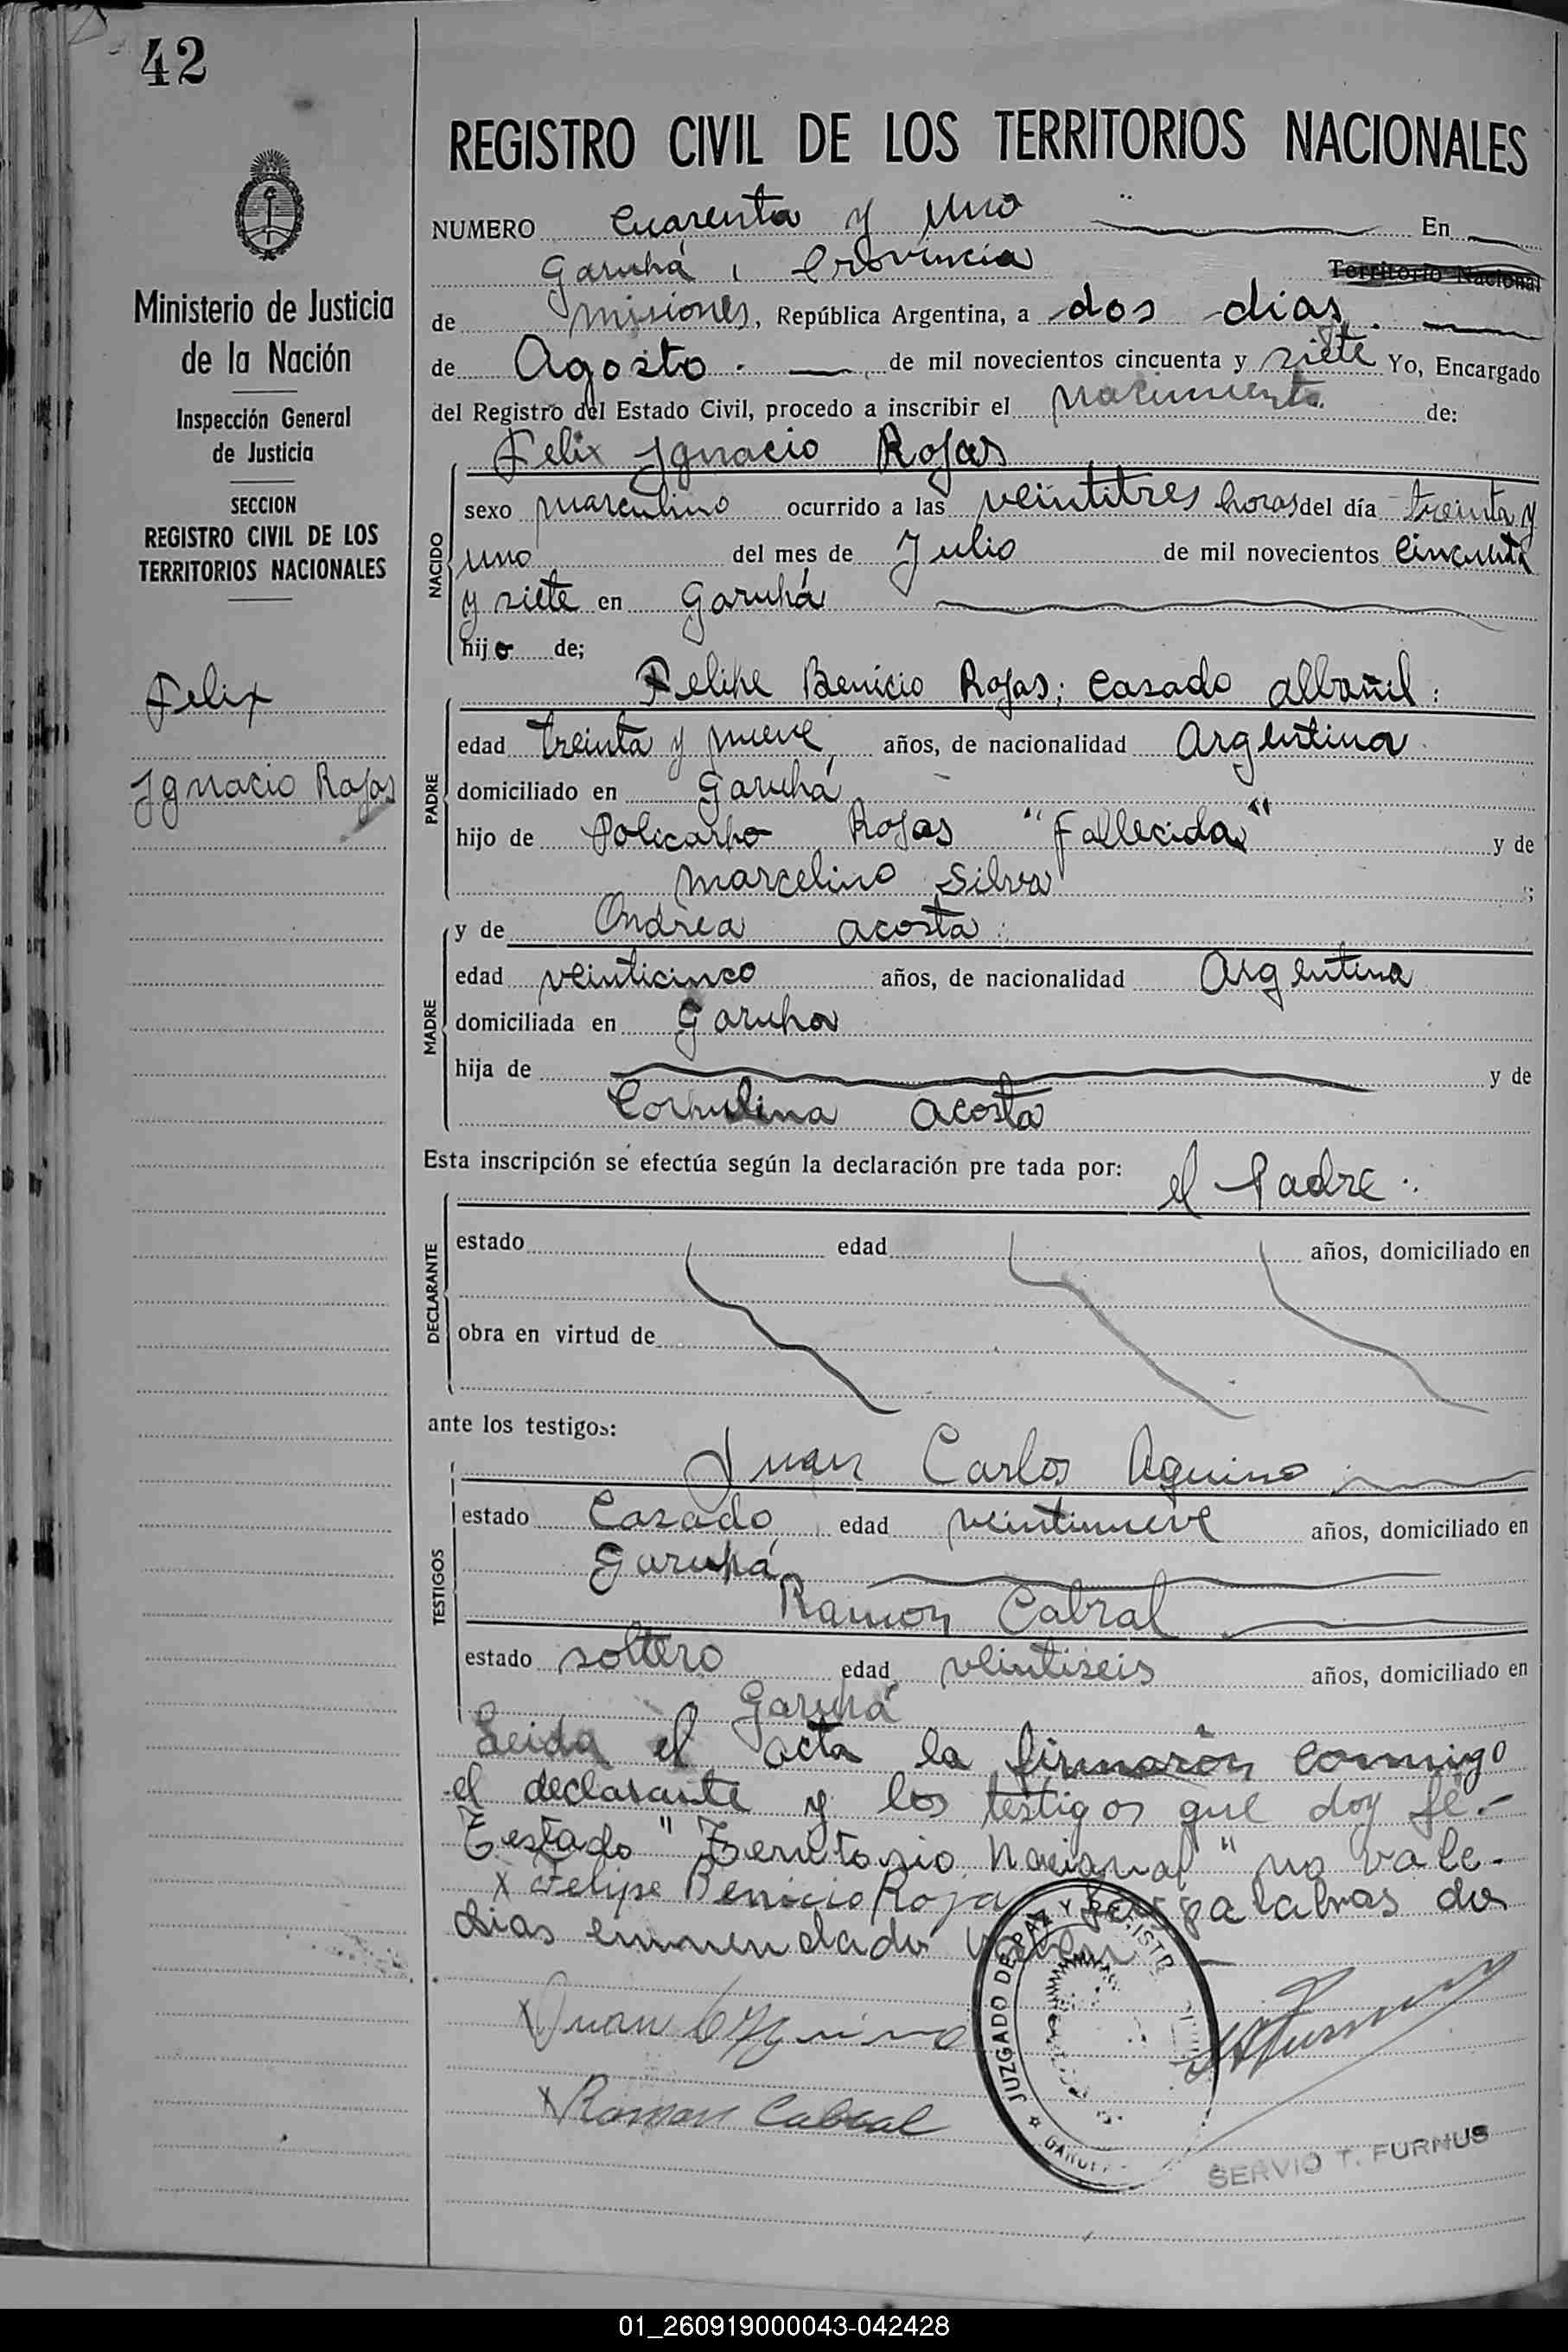 42
REGISTRO CIVIL DE LOS TERRITORIOS NACIONALES
NUMERO Cuarenta y Uno En
Garuhá, Provincia Territorio Nacional
de Misiones, República Argentina, a dos dias
de Agosto de mil novecientos cincuenta y siete Yo, Encargado
del Registro del Estado Civil, procedo a inscribir el nacimiento de:
Felix Ignacio Rojas
NACIDO
sexo masculino ocurrido a las veintitres horas del día treinta y
uno del mes de Julio de mil novecientos cincuenta
y siete en Garuhá
hijo de;
Felipe Benicio Rojas; casado albañil:
PADRE
edad treinta y nueve años, de nacionalidad Argentina
domiciliado en Garuhá
hijo de Policarpo Rojas "Fallecida" y de
Marcelino Silva ;
MADRE
y de Andrea acosta:
edad veinticinco años, de nacionalidad Argentina
domiciliada en Garuha
hija de y de
acosta
Esta inscripción se efectúa según la declaración pre tada por: el Padre
DECLARANTE
estado edad años, domiciliado en
obra en virtud de
ante los testigos:
TESTIGOS
Juan Carlos Aquino
estado Casado edad veintinueve años, domiciliado en
Garuhá
Ramon Cabral
estado soltero edad veintiseis años, domiciliado en
Garuhá
Leida el acta la firmarón conmigo
el declarante y los testigos que doy fé.-
Testado "Territorio Nacional" no vale.
x Felipe Benicio Roja las palabras dos
dias enmendado valen
x Juan C Aquino
x Ramon Cabral
JUZGADO DE PAZ Y REGISTR
GARUP
SERVIO T. FURNUS
Ministerio de Justicia
de la Nación
Inspección General
de Justicia
SECCION
REGISTRO CIVIL DE LOS
TERRITORIOS NACIONALES
Felix
Ignacio Rojas
01_260919000043-042428